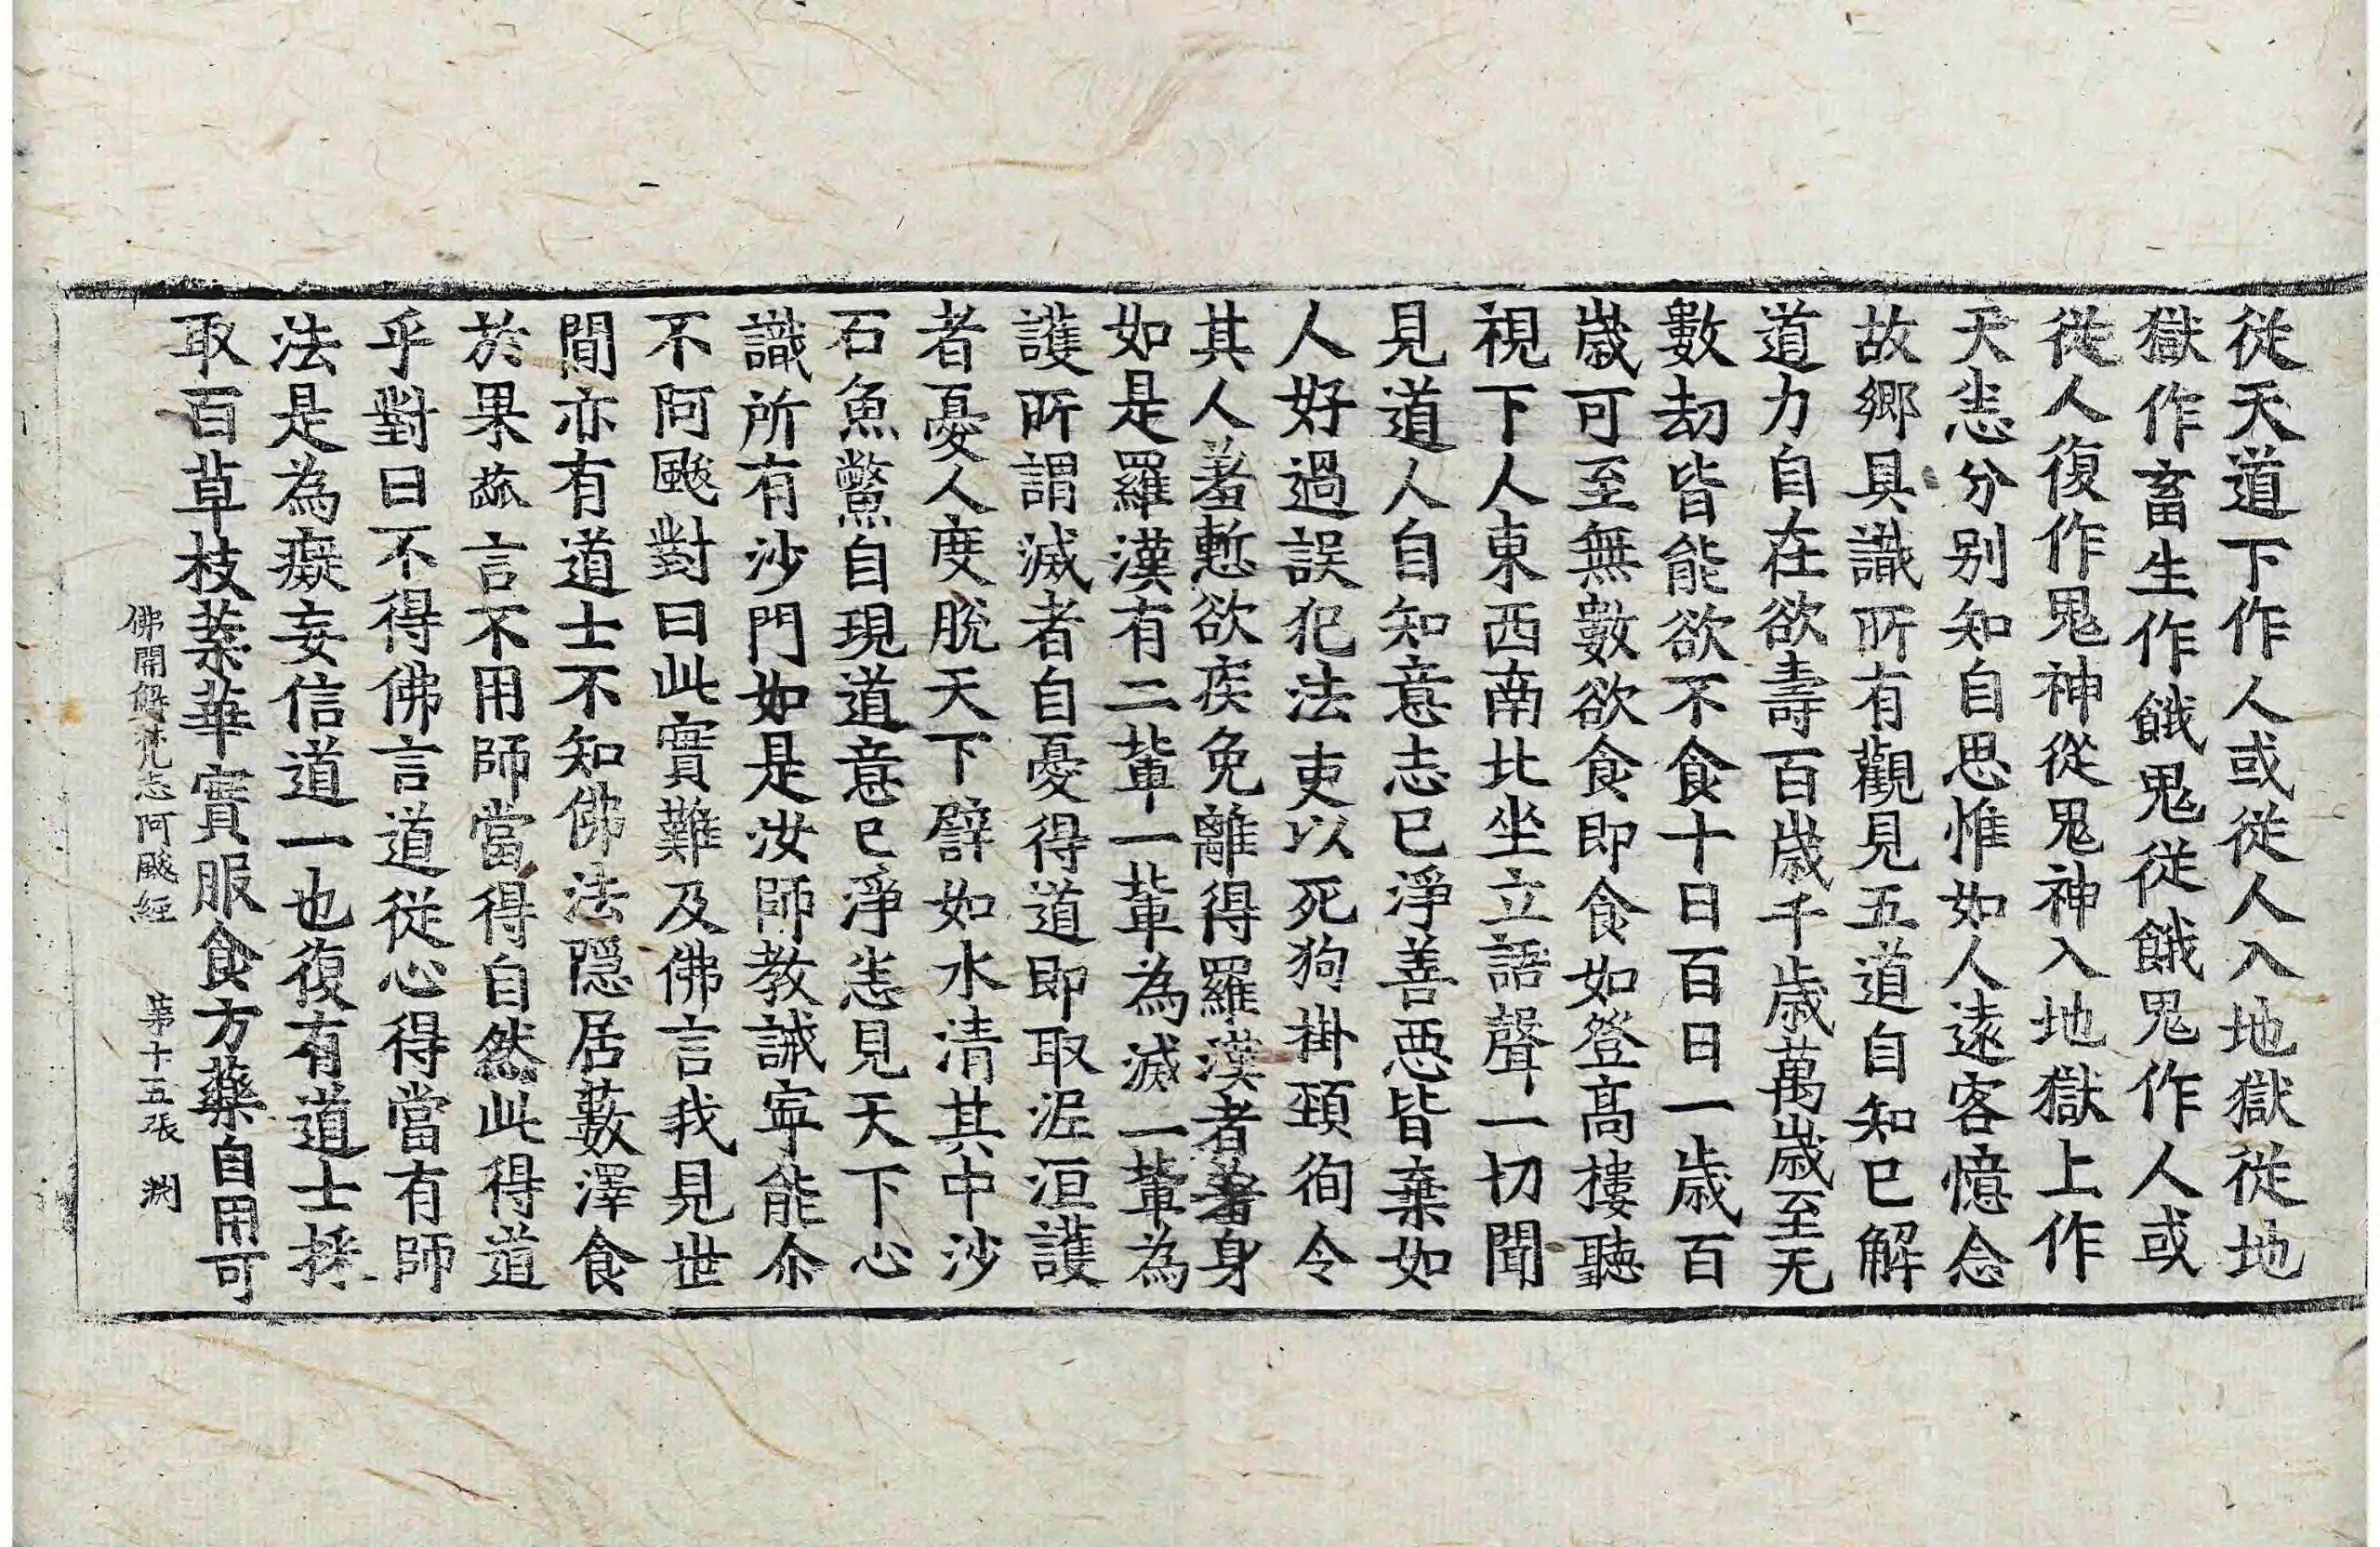 從天道下作人或從人入地獄從地
獄作畜生作餓鬼從餓鬼作人或
從人復作鬼神從鬼神入地獄上作
天恙分别知自思惟如人遠客憶念
故鄉具識所有觀見五道自知已解
道力自在欲壽百歲千歲萬歲至无
數劫皆能欲不食十日百日一歲百
歲可至無數欲食即食如登高樓聽
視下人東西南北坐立語聲一切聞
見道人自知意志已淨善惡皆棄如
人好過誤犯法吏以死狗掛頸徇令
其人羞慙欲疾免離得羅漢者著身
如是羅漢有二輩一輩為滅一輩為
護所謂滅者自憂得道即取泥洹護
者憂人度脫天下譬如水清其中沙
石魚鱉自現道意已淨恙見天下心
識所有沙門如是汝師教誡寧能尒
不阿颰對曰此實難及佛言我見世
間亦有道士不知佛法隱居藪澤食
於果蓏言不用師當得自然此得道
乎對曰不得佛言道從心得當有師
法是為癡妄信道一也復有道士採
取百草枝葉華實服食方藥自用可
佛開解梵志阿颰經 第十五張 渕